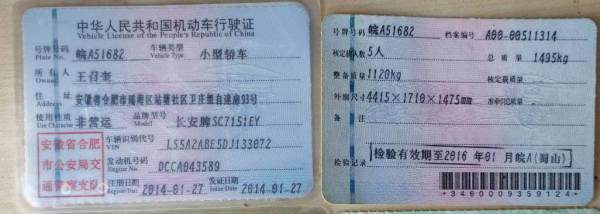 中华人民共和国机动车行驶证
Vehicle License of the People's Republic of China
号牌号码 皖A51682 车辆类型 小型轿车
Plate No. Vehicle Type
所有人 王召奎
Owner
住址 安徽省合肥市蜀湖区站塘社区卫庄组自建房93号
Address
使用性质 非营运 品牌型号 长安牌SC7151EY
Use Character Model
安徽省合肥 车辆识别代号 LS5A2ABE5DJ133072
VIN
市公安局交 发动机号码 DCCA043589
Engine No.
通警察支队 注册日期 2014-01-27 发证日期 2014-01-27
Register Date Issue Date
号牌号码 皖A51682 档案编号 A00-00511314
核定载人数 5人 总质量 1495kg
整备质量 1120kg 核定载质量
外廓尺寸 4415×1710×1475mm 准牵引总质量
备注
检验记录 检验有效期至2016年01月皖A(蜀山)
*3460009359124*